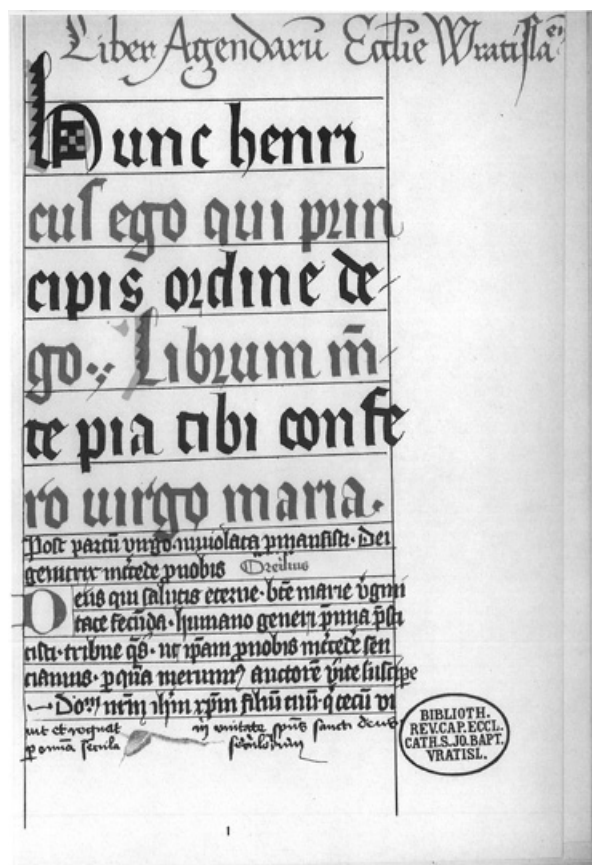 Liber Agendarū Ecclīe Wratislaeñ
Hunc henri
cus ego qui prin
cipis ordine de-
go. Librum m̄-
te pia tibi confe
ro uirgo maria.
Post partū virgo inviolata pmansisti. Dei
genitrix int̄cede pnobis
Deus qui salutis eterne. bt̄e marie v̄gini
tate fec̄uda. humano generi p̄mia p̄sti
tisti. tribue q̄s. ut ip̄am pnobis int̄cedē sen
ciamus. p quā meruim9 auctorē vite suscipe
Dom̄ nrm̄ ihm̄ xpm̄ filiū tuū. q tecū vi
uit et regnat in vnitate sp̄us sancti deus
p omīa secula
BIBLIOTH.
REV.CAP.ECCL.
CATH.S.JO.BAPT.
VRATISL.
1